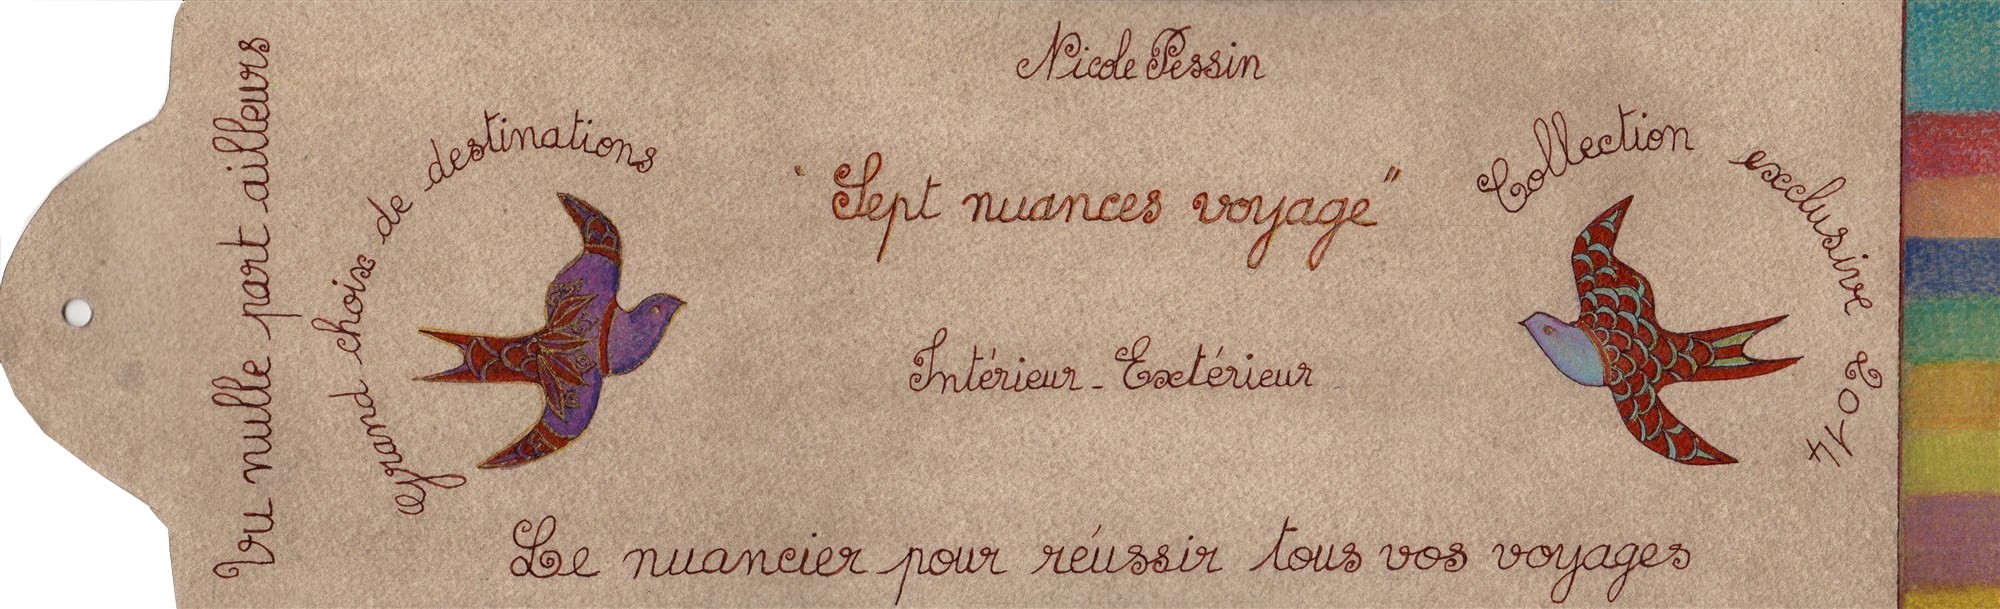 Vu nulle part ailleurs
Grand choix de destinations
Nicole Pessin
"Sept nuances voyage"
Intérieur - Extérieur
Collection exclusive 2014
Le nuancier pour réussir tous vos voyages